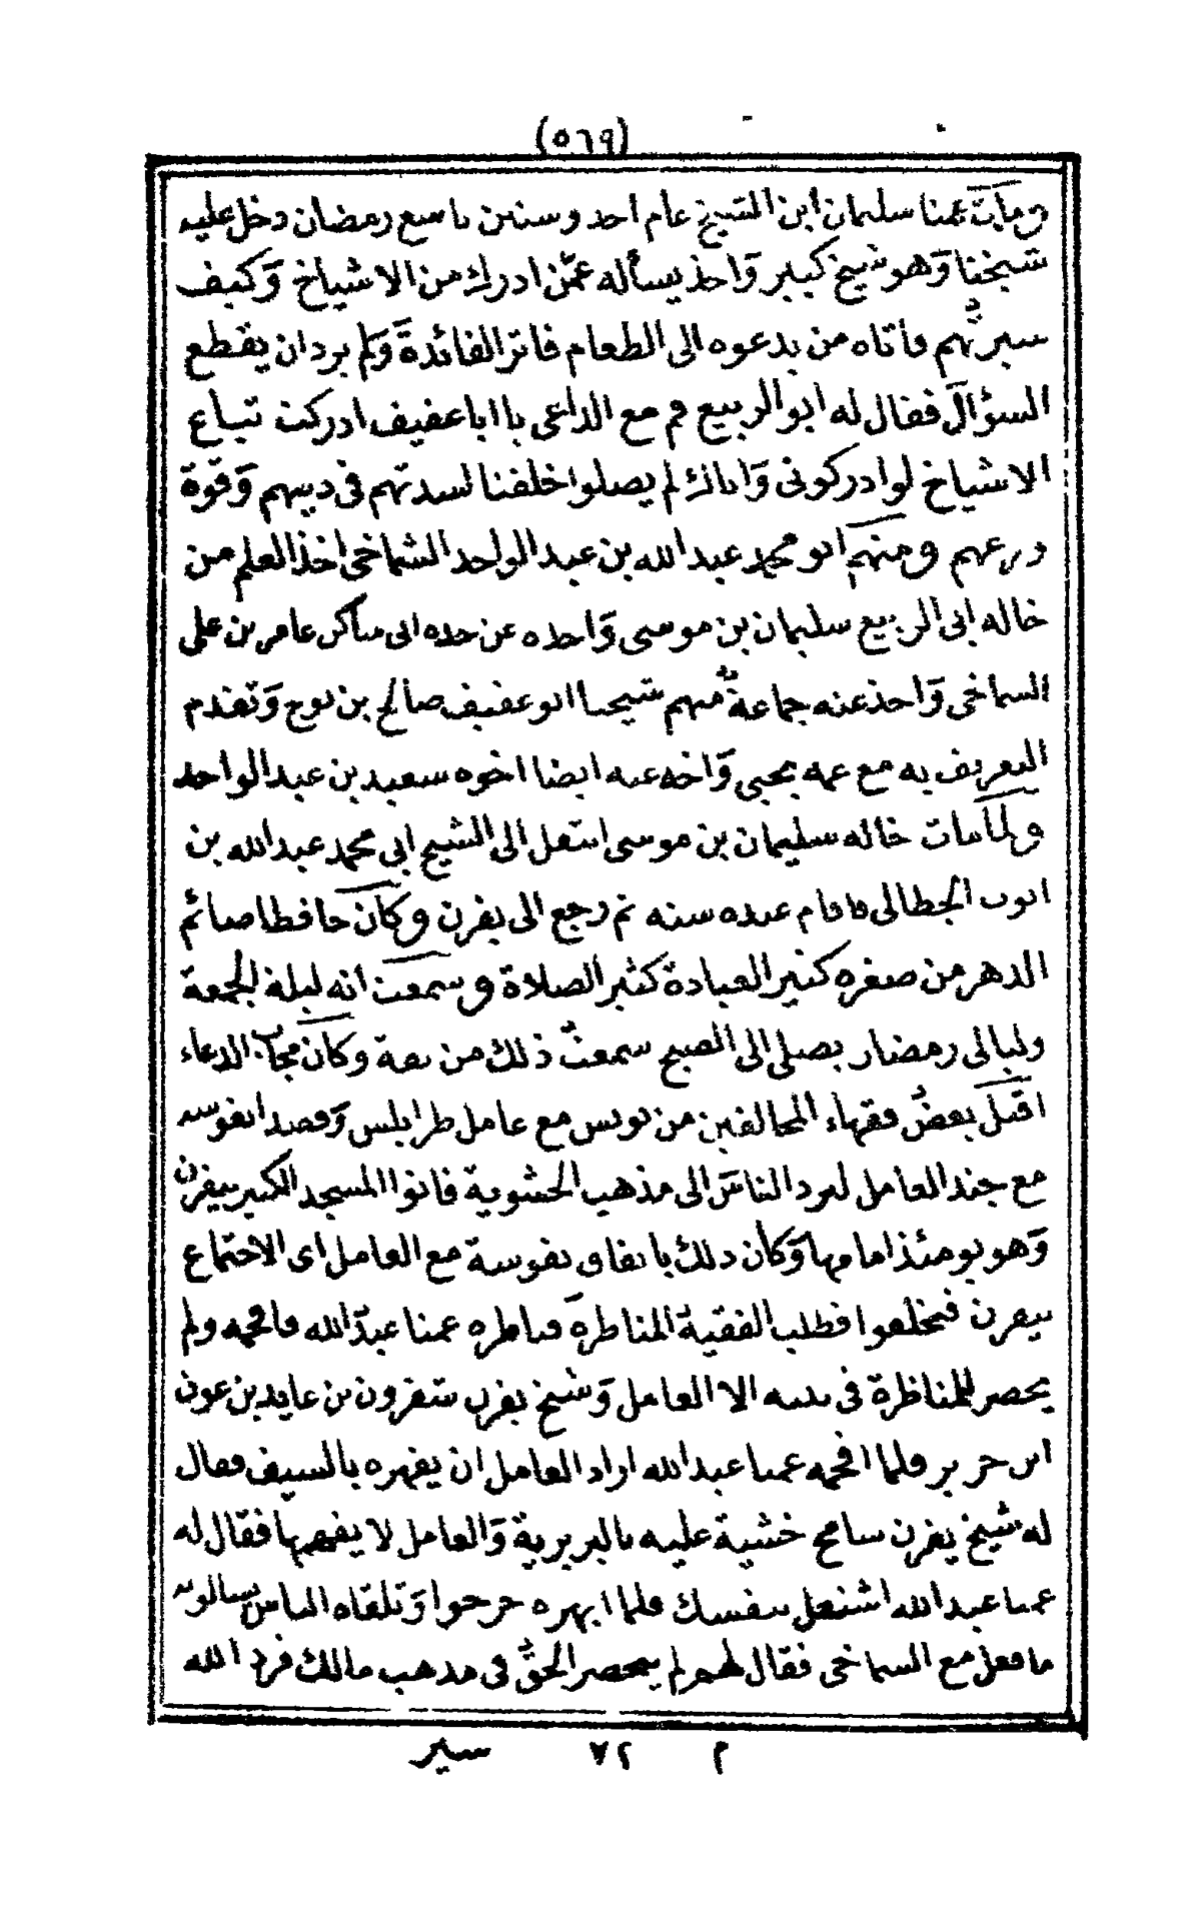 (٥٦٩)
ومات عمنا سليمان ابن الشيخ عام احد وستين تاسع رمضان دخل عليه
شيخنا وهو شيخ كبير واخذ يسأله عمن ادرك من الاشياخ وكيف
سيرتهم فاتاه من يدعوه الى الطعام فاثر الفائدة ولم يرد ان يقطع
السؤال فقال له ابو الربيع قم مع الداعى يا ابا عفيف ادركت تباع
الاشياخ لو ادركونى واياك لم يصلوا خلفنا لشدتهم فى دينهم وقوة
ورعهم ومنهم ابو محمد عبد الله بن عبد الواحد الشماخى اخذ العلم من
خاله ابى الربيع سليمان بن موسى واخذه عن جده ابى ساكن عامر بن على
الشماخى واخذ عنه جماعة منهم شيخنا ابو عفيف صالح بن نوح وتقدم
التعريف به مع عمه يحيى واخذ عنه ايضا اخوه سعيد بن عبد الواحد
ولما مات خاله سليمان بن موسى انتقل الى الشيخ ابى محمد عبد الله بن
ايوب الجطالى فاقام عنده سنه ثم رجع الى يفرن وكان حافظا صائم
الدهر من صغره كثير العبادة كثير الصلاة وسمعت انه ليلة الجمعة
وليالى رمضان يصلى الى الصبح سمعت ذلك من ثقة وكان مجاب الدعاء
اقبل بعض فقهاء المخالفين من تونس مع عامل طرابلس وقصد انفوسه
مع جند العامل ليرد الناس الى مذهب الحشوية فاتوا المسجد الكبير بيفرن
وهو يومئذ امامها وكان ذلك باتفاق نفوسة مع العامل اى الاجتماع
بيفرن فتخلفوا فطلب الفقية المناظرة فناظره عمنا عبد الله فافحمه ولم
يحضر للمناظرة فى بيته الا العامل وشيخ يفرن شقرون بن عايد بن عون
ابن حرير فلما افحمه عمنا عبد الله اراد العامل ان يقهره بالسيف فقال
له شيخ يفرن سامح خشية عليه بالبربرية والعامل لا يفهمها فقال له
عمنا عبد الله اشتغل بنفسك فلما ابهره خرجوا وتلقاه الناس يسالونه
ما فعل مع الشماخى فقال لهم لم ينحصر الحق فى مذهب مالك فرد الله
م ٧٢ سير